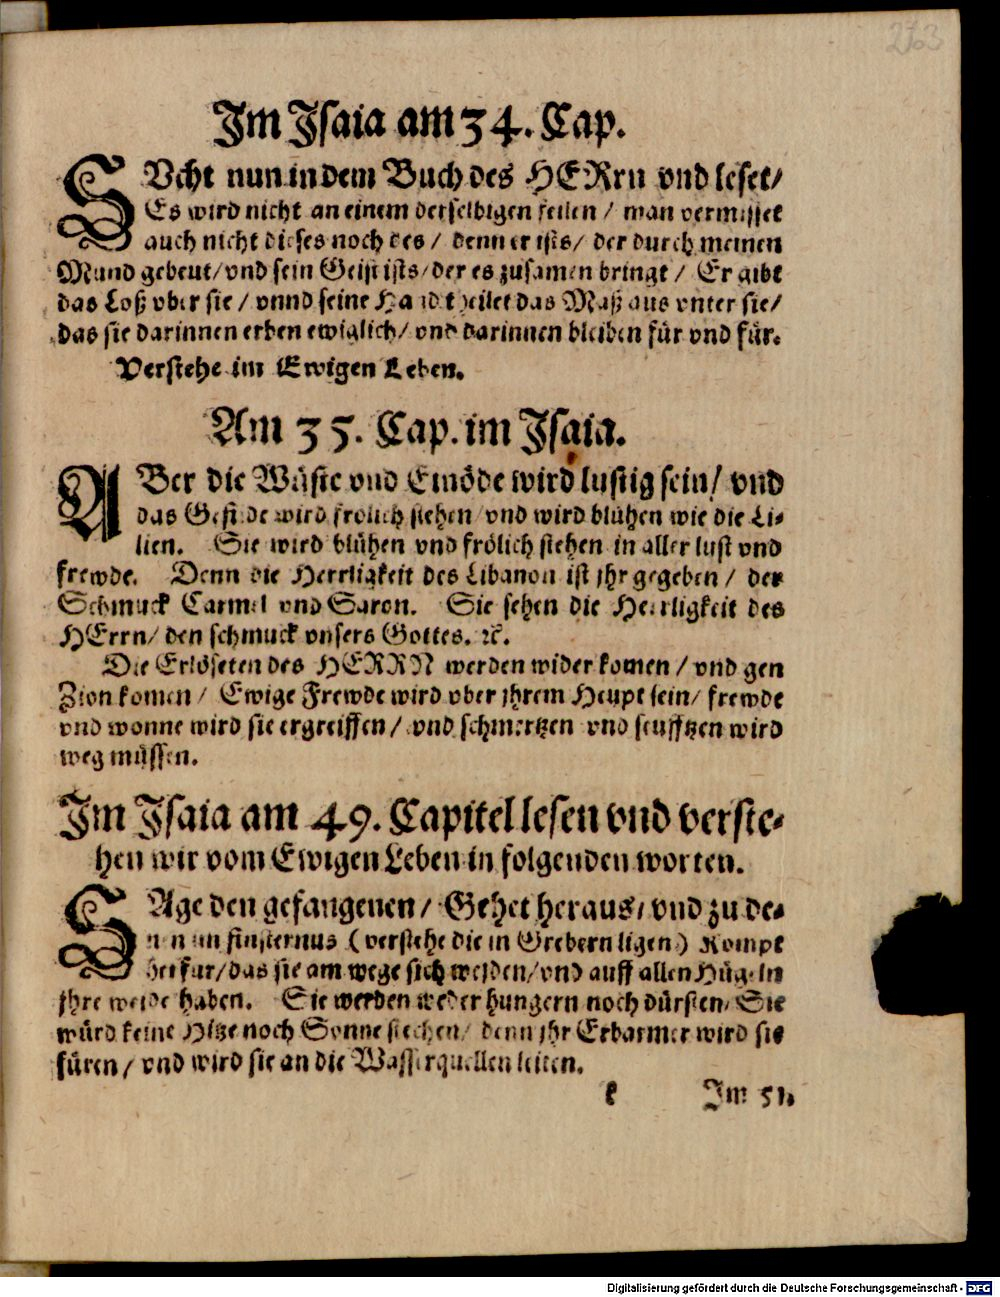 263
Im Jsaia am 34. Cap.
SVcht nun in dem Buch des HERrn vnd leset/
Es wird nicht an einem derselbigen feilen / man vermisset
auch nicht dieses noch des / denn er ists / der durch meinen
Mund gebeut / vnd sein Geist ists / der es zusamen bringt / Er gibt
das Loß vber sie / vnnd seine Hand theilet das Maß aus vnter sie /
das sie darinnen erben ewiglich / vnd darinnen bleiben für vnd für.
Verstehe im Ewigen Leben.
Am 35. Cap. im Jsaia.
ABer die Wüste vnd Einöde wird lustig sein / vnd
das Gefilde wird frölich stehen / vnd wird blühen wie die Li-
lien. Sie wird blühen vnd frölich stehen in aller lust vnd
frewde. Denn die Herrligkeit des Libanon ist jhr gegeben / der
Schmuck Carmel vnd Saron. Sie sehen die Herrligkeit des
HErrn / den schmuck vnsers Gottes. ꝛc.
Die Erlöseten des HERRN werden wider komen / vnd gen
Zion komen / Ewige Frewde wird vber jhrem Heupt sein / frewde
vnd wonne wird sie ergreiffen / vnd schmertzen vnd seufftzen wird
weg müssen.
Im Jsaia am 49. Capitel lesen vnd verste-
hen wir vom Ewigen Leben in folgenden worten.
SAge den gefangenen / Gehet heraus / vnd zu de-
nen im finsternus (verstehe die in Grebern ligen) Kompt
herfur / das sie am wege sich weiden / vnd auff allen Hügeln
jhre weide haben. Sie werden weder hungern noch dürsten / Sie
würd keine Hitze noch Sonne stechen / denn jhr Erbarmer wird sie
füren / vnd wird sie an die Wasserquellen leiten.
k Im 51.
Digitalisierung gefördert durch die Deutsche Forschungsgemeinschaft - DFG